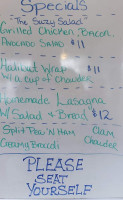 Specials
"The Suzy Salad"
Grilled Chicken, Bacon,
Avocado Salad $11
Halibut Wrap $11
W/a cup of Chowder
Homemade Lasagna
W/ Salad & Bread $12
Split Pea 'N Ham Clam
Creamy Broccoli Chowder
PLEASE
SEAT
YOURSELF